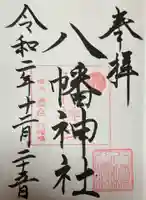 奉拝
八幡神社
令和二年十二月二十五日